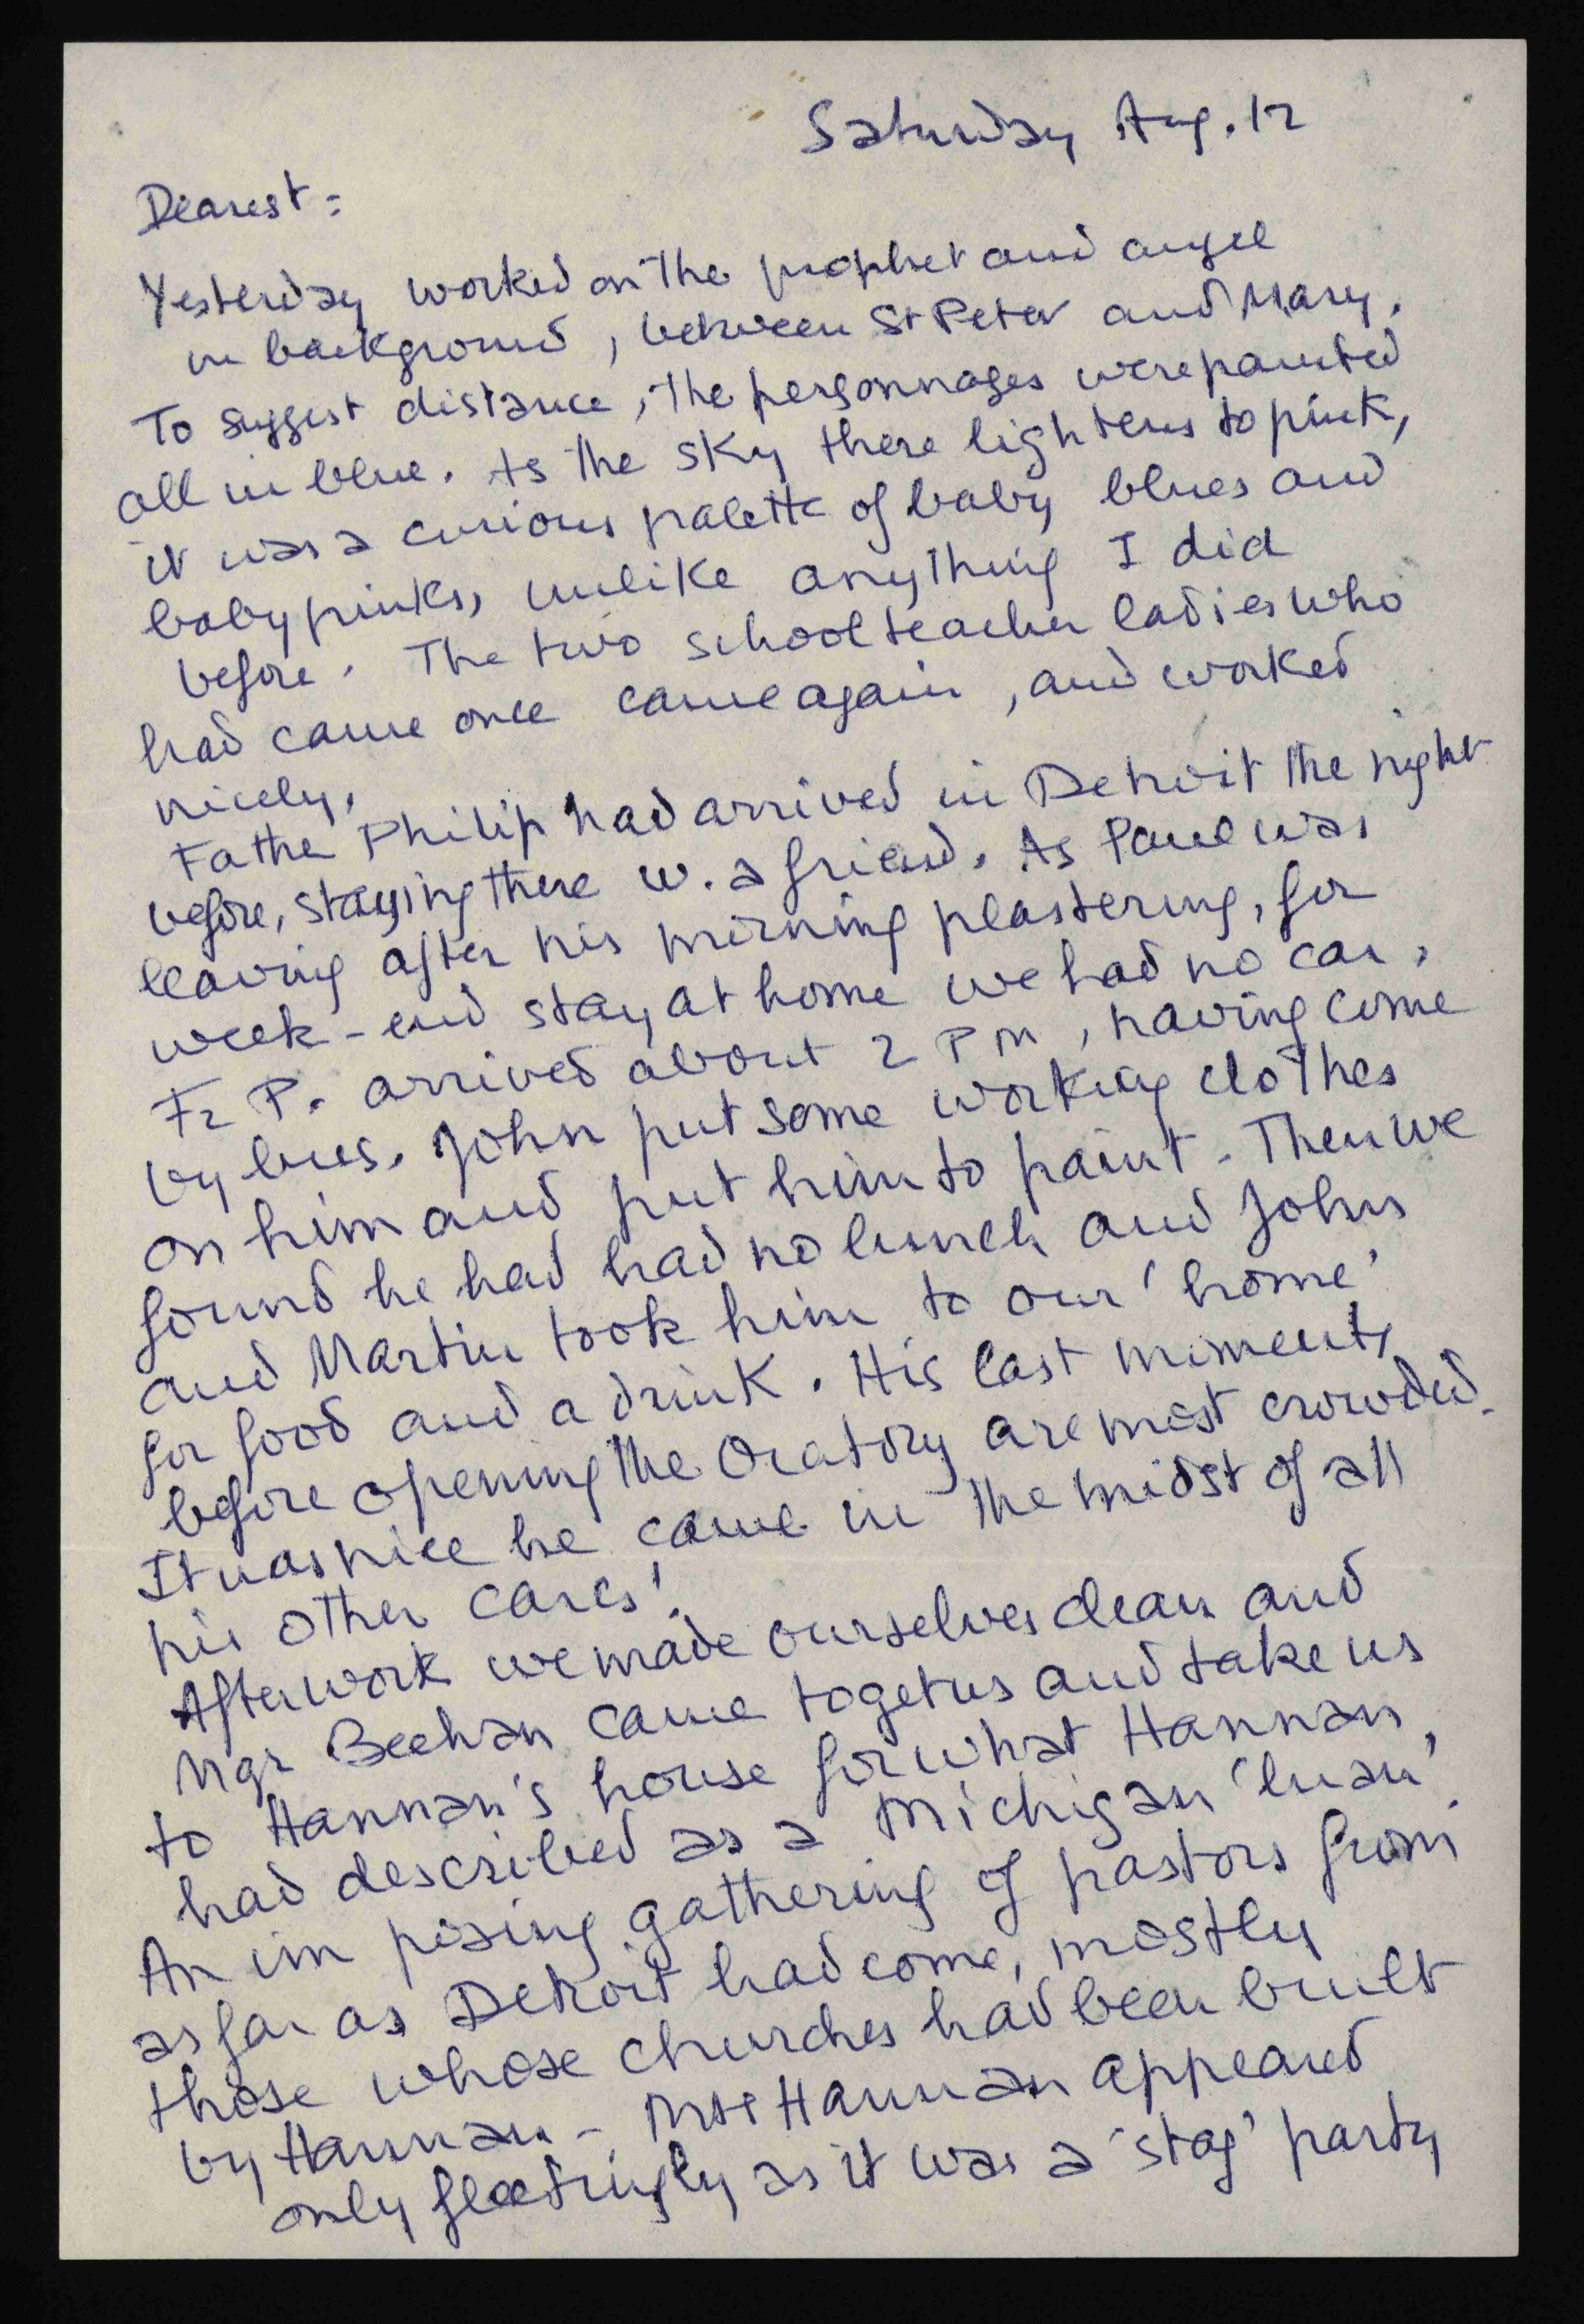 Saturday Aug. 12
Dearest:
Yesterday worked on the prophet and angel
in background, between St Peter and Mary.
To suggest distance, the personnages were painted
all in blue. As the sky there lightens to pink,
it was a curious palette of baby blues and
baby pinks, unlike anything I did
before. The two school teacher ladies who
had came once came again, and worked
nicely.
Father Philip had arrived in Detroit the night
before, staying there w. a friend. As Paul was
leaving after his morning plastering, for
week-end stay at home we had no car,
Fr P. arrived about 2 PM, having come
by bus. John put some working clothes
on him and put him to paint. Then we
found he had had no lunch and John
and Martin took him to our 'home'
for food and a drink. His last moments
before opening the Oratory are most crowded.
It was nice he came in the midst of all
his other cares!
After work we made ourselves clean and
Mgr Beehan came to get us and take us
to Hannan's house for what Hannan
had described as a Michigan 'luau'.
An imposing gathering of pastors from
as far as Detroit had come, mostly
those whose churches had been built
by Hannan - Mrs Hannan appeared
only fleetingly as it was a 'stag' party